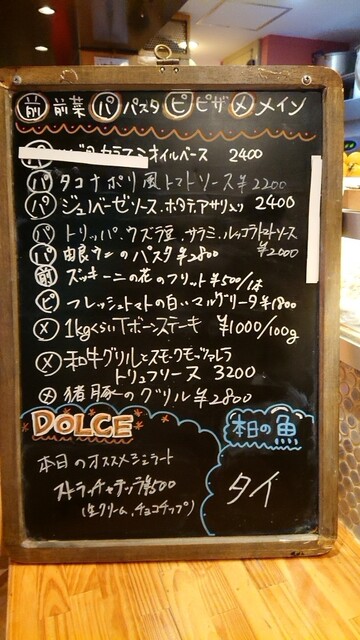 前 前菜 パ パスタ ピ ピザ メ メイン
パ オイルベース 2400
パ タコナポリ風トマトソース ¥2200
パ ジェノベーゼソース、ホタテ、アサリ入り 2400
パ トリッパ、ウズラ豆、サラミ、ルッコラトマトソース ¥2000
パ 由良ウニのパスタ ¥2800
前 ズッキーニの花のフリット ¥500/1本
ピ フレッシュトマトの白いマルゲリータ ¥1800
メ 1kgくらいTボーンステーキ ¥1000/100g
メ 和牛グリルとスモークモッツァレラ
トリュフソース 3200
メ 猪豚のグリル ¥2800
DOLCE
本日のオススメジェラート
ストラッチャテッラ ¥500
(生クリーム、チョコチップ)
本日の魚
タイ